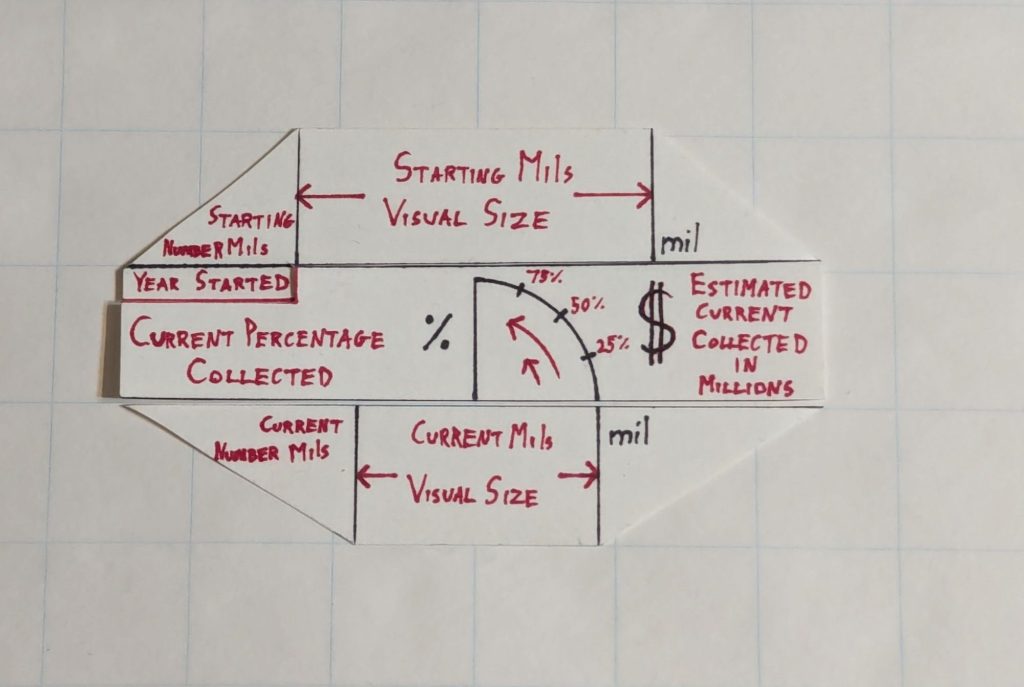 Starting Mils
Visual Size
Starting
Number Mils
mil
Year Started
Current Percentage
Collected
%
75%
50%
25%
$
Estimated
Current
Collected
in
Millions
Current
Number Mils
Current Mils
Visual Size
mil